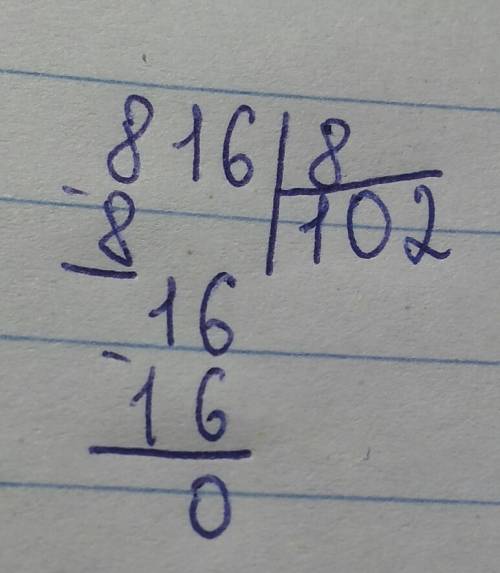 816 | 8
- 8 | 102
16
- 16
0